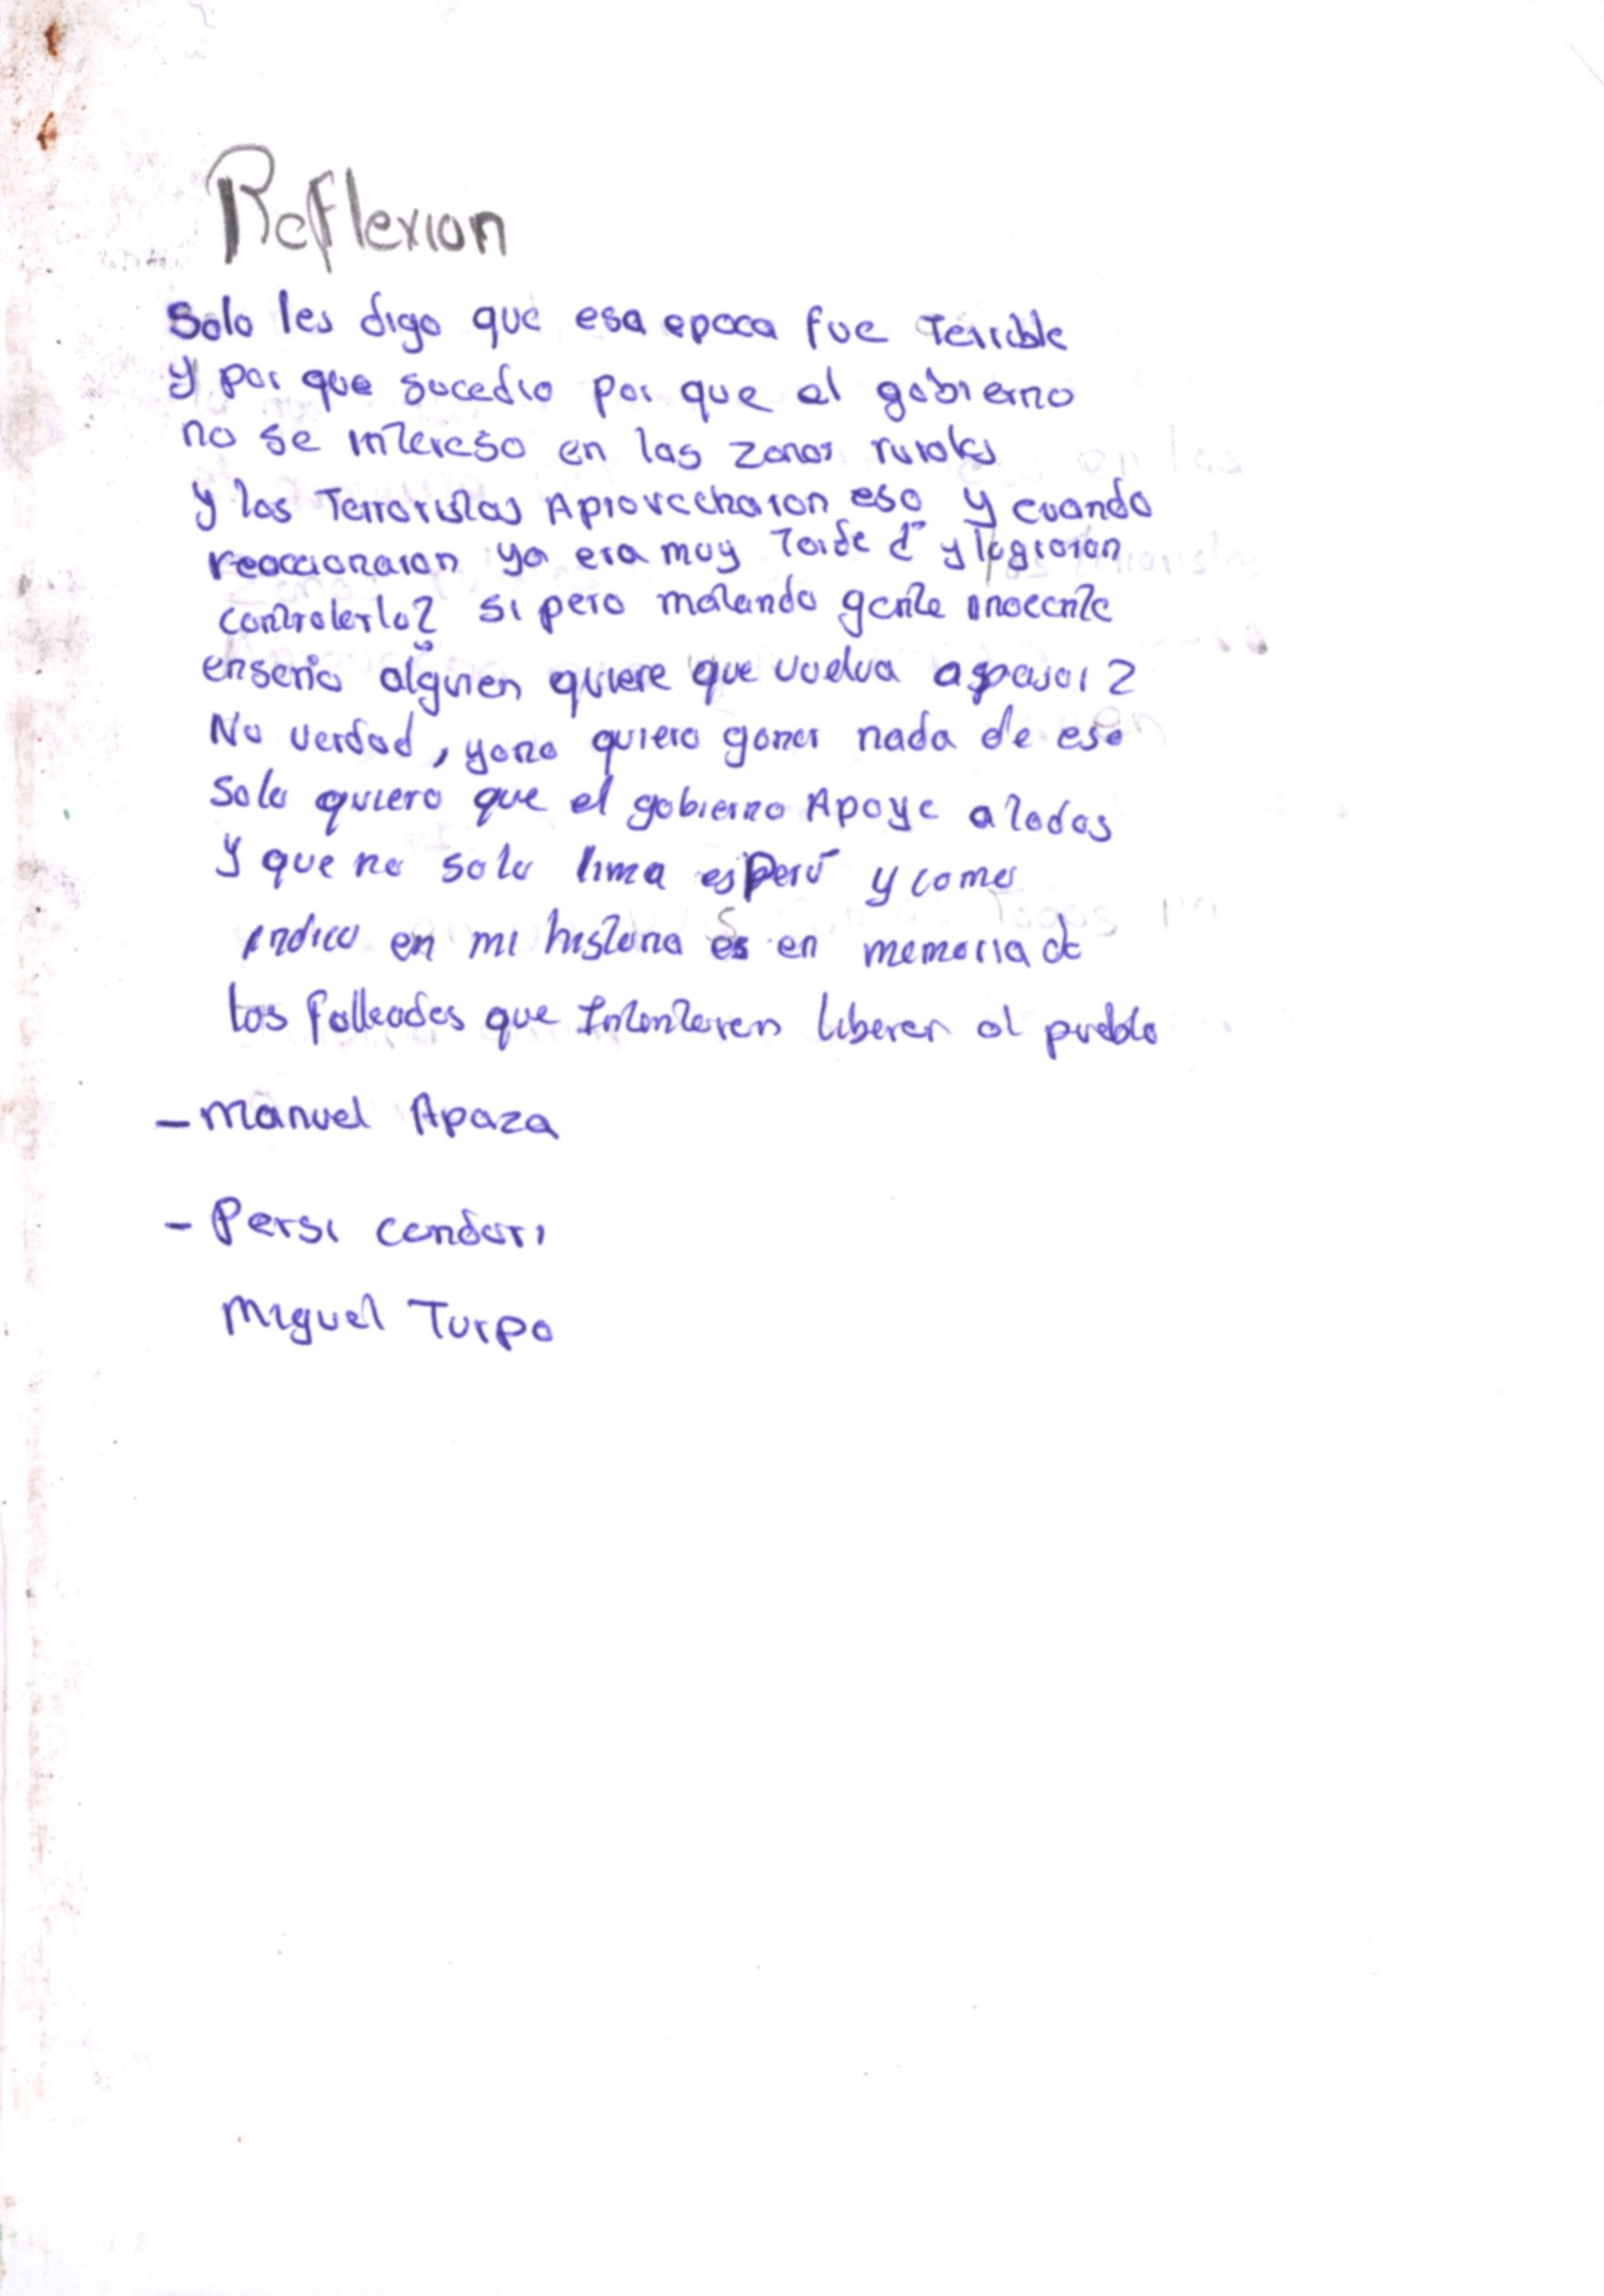 Reflexion
Solo les digo que esa epoca fue Terrible
y por que sucedio por que el gobierno
no se intereso en las zonas rurales
y los Terroristas Aprovecharon eso y cuando
reaccionaron ya era muy Tarde ¿ y lograron
controlarlo? si pero matando gente inocente
enserio alguien quiere que vuelva a pasar?
No verdad, yo no quiero ganar nada de eso
solo quiero que el gobierno Apoye a todos
y que no solo lima es Perú y como
indico en mi historia es en memoria de
los falleados que Intentaron liberar al pueblo
- Manuel Apaza
- Persi condori
Miguel Turpo